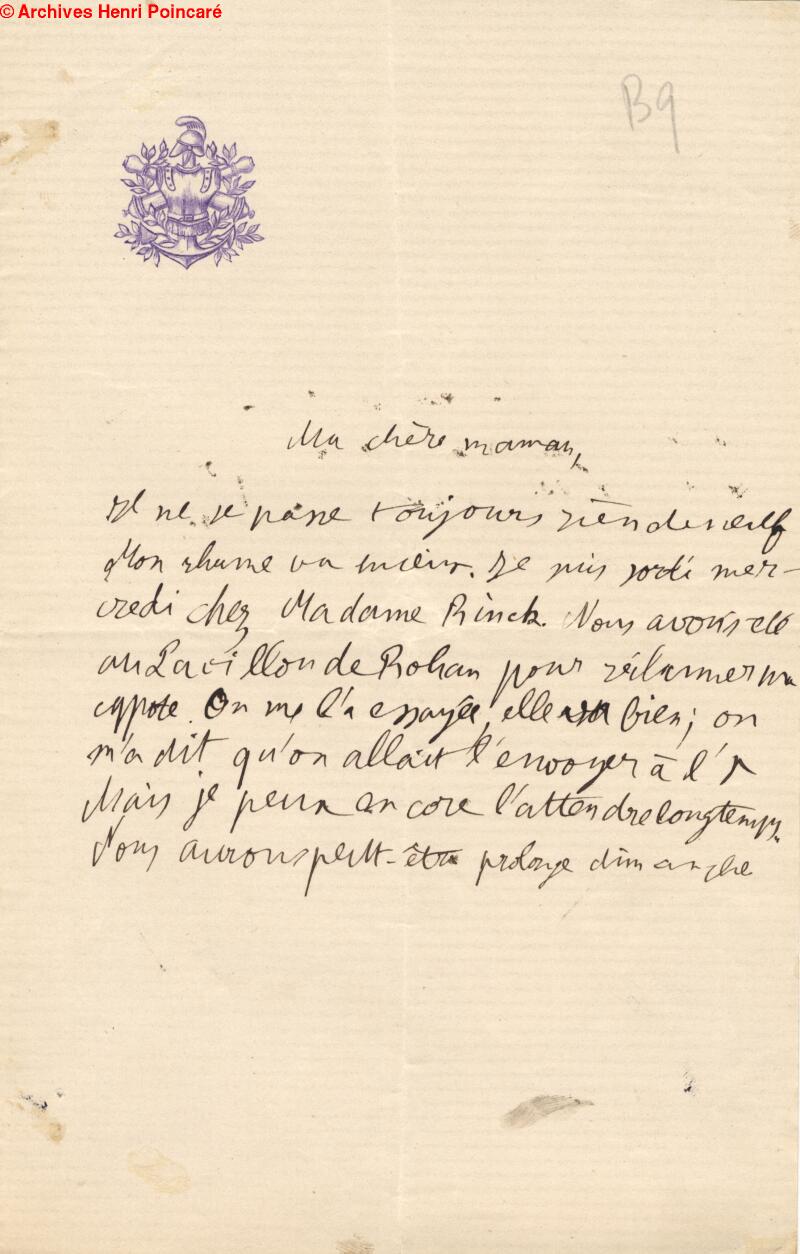 © Archives Henri Poincaré
B9
Ma chère maman,
Il ne se passe toujours rien de neuf
Mon rhume va mieux. Je suis sorti mer-
credi chez Madame Rinck. Nous avons été
au Pavillon de Rohan pour réclamer ma
capote. On me l'a essayée, elle va bien; on
m'a dit qu'on allait l'envoyer à l'X
Mais je peux encore l'attendre longtemps.
Nous aurons peut-être prolonge dimanche